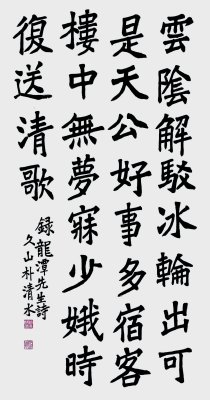 雲陰解駁冰輪出可
是天公好事多宿客
樓中無夢寐少娥時
復送清歌
錄龍潭先生詩
久山朴清水